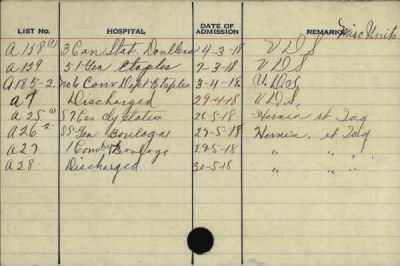 LIST No. HOSPITAL DATE OF ADMISSION REMARKS Misc Units
A 158 (1) 3 Can Stat. Doullens 4-3-18 V D S
A 159 51 Gen Etaples 7-3-18 V D S
A 185-2 No 6 Conv Dept Etaples 3-4-18 V.D.S
A 7 Discharged 29-4-18 V.D.S.
A 25 (1) 57 Cas Cly Station 26-5-18 Hernia rt Ing
A 26-2 55 Gen Boulogne 27-5-18 Hernia. rt Ing
A 27 1 Conv Dept Boulogne 29-5-18 " " "
A 28. Discharged 30-5-18 " "